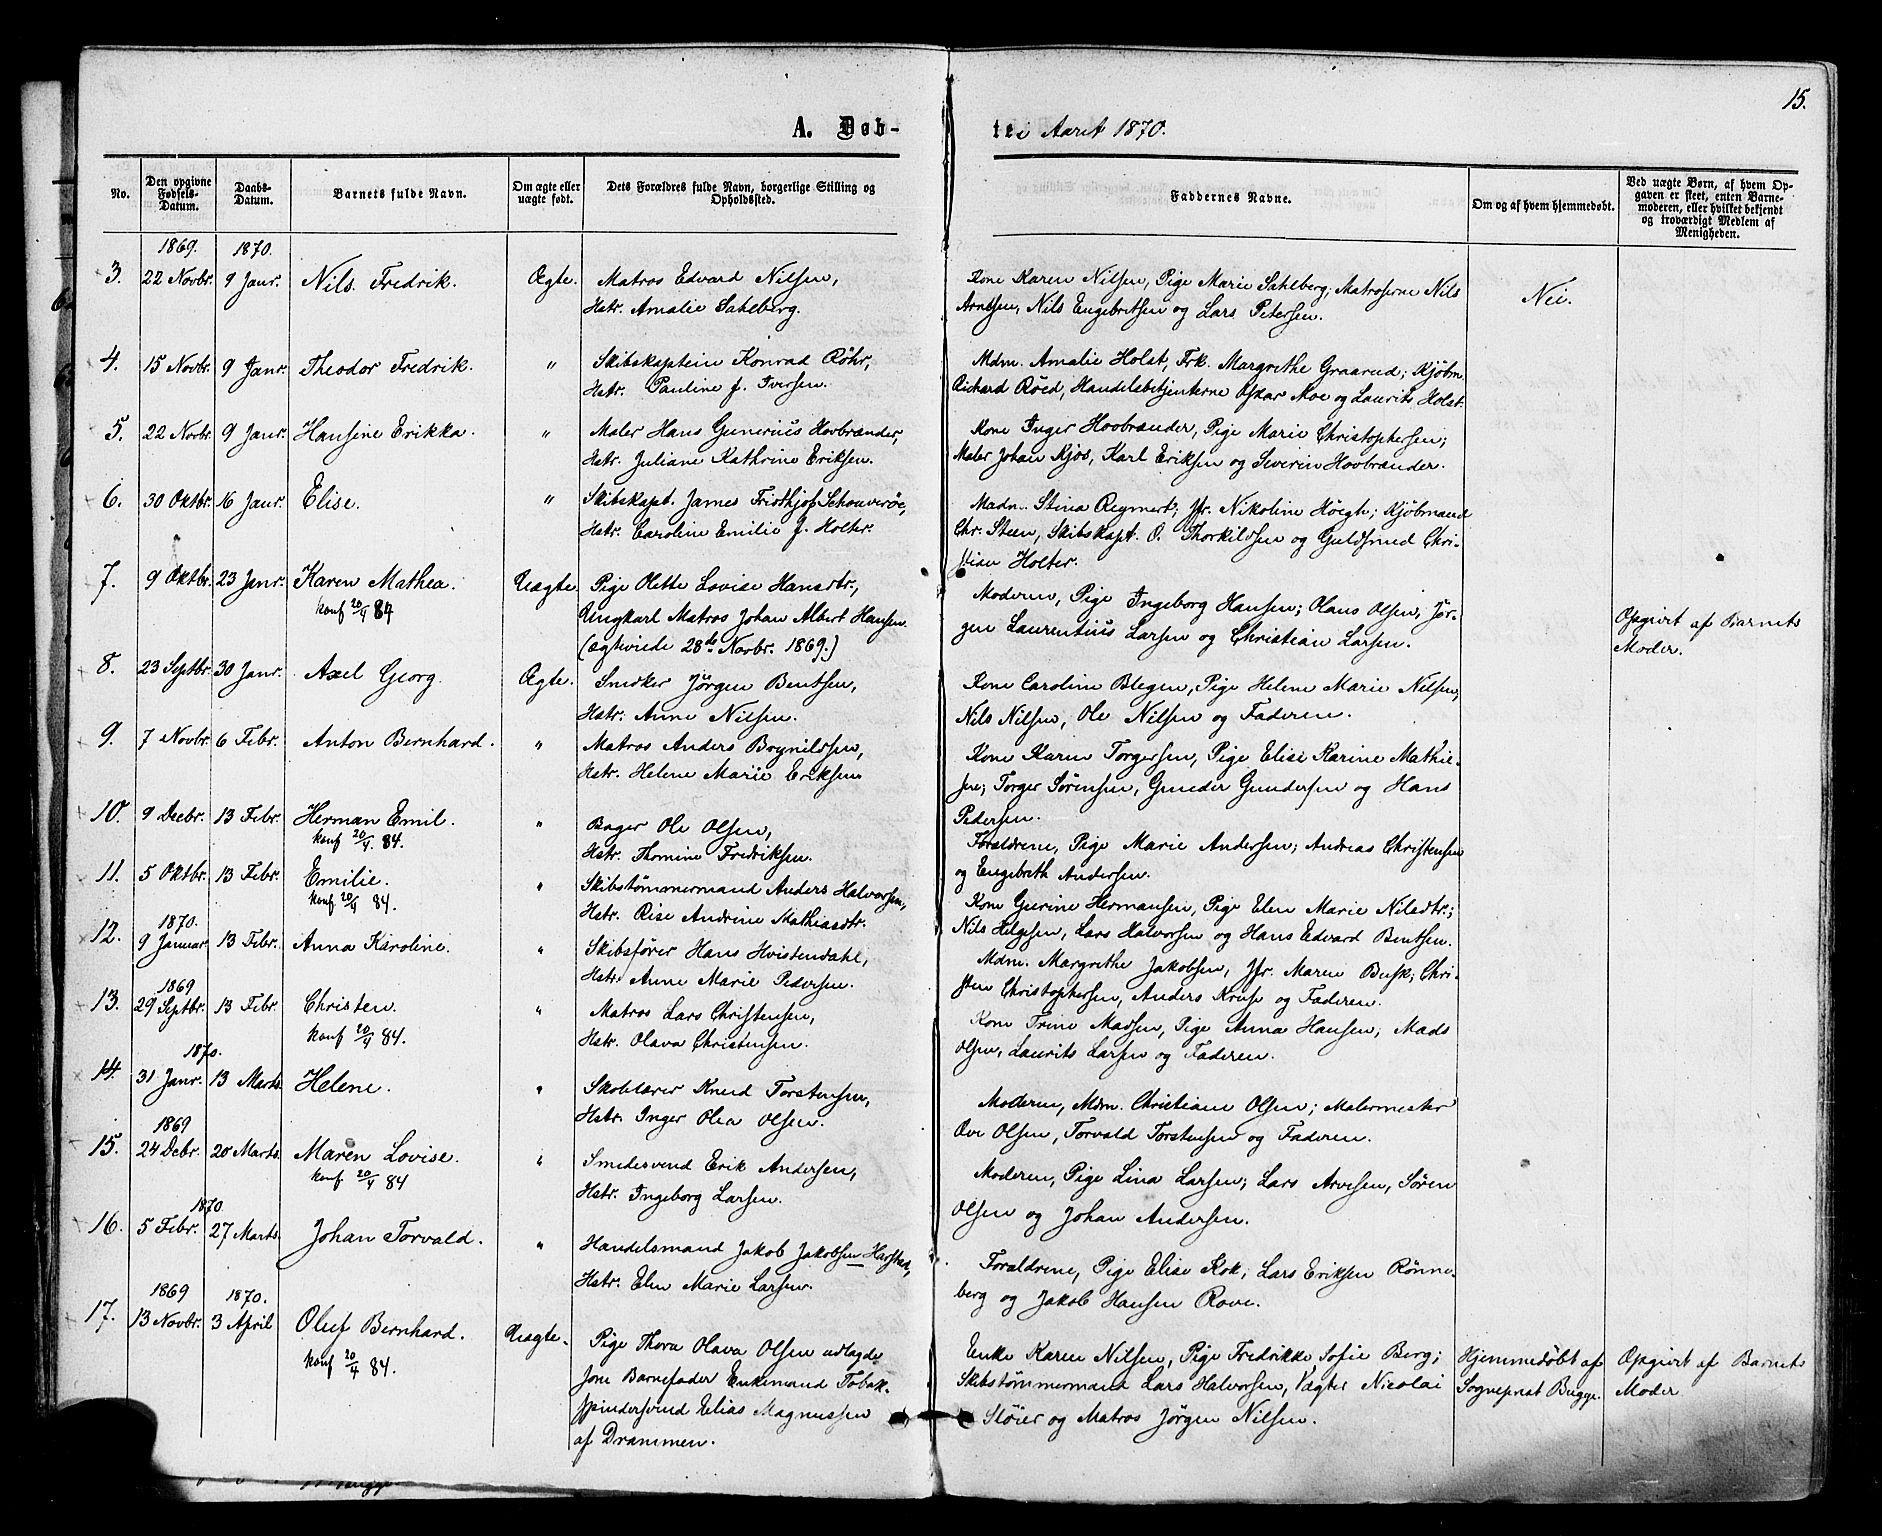 15.
A. Døb-
te i Aaret 1870.
No.
Den opgivne Fødsels-Datum.
Daabs-Datum.
Barnets fulde Navn.
Om ægte eller uægte født.
Dets Forældres fulde Navn, borgerlige Stilling og Opholdssted.
Faddernes Navne.
Om og af hvem hjemmedøbt.
Ved uægte Børn, af hvem Opgaven er skeet, enten Barnemoderen, eller hvilket bekjendt og troværdigt Medlem af Menigheden.
1869. 1870.
3. 22 Novbr. 9 Janr. Nils Fredrik. Ægte. Matros Edvard Nilsen,
Hstr. Amalie Sahlberg.
Kone Karen Nilsen, Pige Marie Sahlberg; Matroserne Nils
Arntsen, Nils Engebretsen og Lars Petersen.
Nei.
4. 15 Novbr. 9 Janr. Theodor Fredrik. " Skibskaptein Konrad Røhr,
Hstr. Pauline f. Iversen.
Mdm. Amalie Holst, Frk. Margrethe Graarud; Kjøbm.
Richard Røed, Handelsbetjenterne Oskar Moe og Laurits Holst.
5. 22 Novbr. 9 Janr. Hansine Erikka. " Maler Hans Gunerius Hovbrænder,
Hstr. Juliane Kathrine Eriksen.
Kone Inger Hovbrænder, Pige Marie Christophersen;
Maler Johan Kjøs, Karl Eriksen og Severin Hovbrænder.
6. 30 Oktbr. 16 Janr. Elise. " Skibskapt. James Fridthjof Schouverøe,
Hstr. Caroline Emilie f. Holter.
Madm. Stina Regmert; Jfr. Nikoline Høegh; Kjøbmand
Chr. Steen, Skibskapt. O. Thorkildsen og Guldsmed Chri-
stian Holter.
7. 9 Oktbr. 23 Janr. Karen Mathea. Uægte. Pige Olette Lovise Hansdtr.,
konf 20/4 84
Ungkarl Matros Johan Albert Hansen.
(ægteviede 28de Novbr. 1869.)
Moderen, Pige Ingeborg Hansen; Olaus Olsen, Jør-
gen Laurentius Larsen og Christian Larsen.
Opgivet af Barnets
Moder.
8. 23 Septbr. 30 Janr. Axel Georg. Ægte. Snedker Jørgen Bentsen,
Hstr. Anne Nilsen.
Kone Caroline Blegen, Pige Helene Marie Nilsen,
Nils Nilsen, Ole Nilsen og Faderen.
9. 7 Novbr. 6 Febr. Anton Bernhard. " Matros Anders Brynildsen,
Hstr. Helene Marie Eriksen
Kone Karen Torgersen, Pige Elise Karine Mathie-
sen; Torger Sørensen, Gunder Gundersen og Hans
Pedersen.
10. 9 Decbr. 13 Febr. Herman Emil. " Bager Ole Olsen,
konf 20/4. 84.
Hstr. Thomine Fredriksen.
Forældrene, Pige Marie Andersen; Andreas Christensen
og Engebreth Andersen.
11. 5 Oktbr. 13 Febr. Emilie. " Skibstømmermand Anders Halvorsen,
konf 20/4 84.
Hstr. Rise Andrine Mathiasdtr.
Kone Gurine Hermansen, Pige Elen Marie Nilsdtr;
Nils Helgesen, Lars Halvorsen og Hans Edvard Bentsen.
1870.
12. 9 Januar 13 Febr. Anna Karoline. " Skibsfører Hans Hvistendahl,
Hstr. Anne Marie Pedersen.
Mdm. Margrethe Jakobsen, Jfr. Maren Busk; Chri-
sten Christophersen, Anders Kruse og Faderen.
1869
13. 29 Septbr. 13 Febr. Christen. " Matros Lars Christensen,
konf 20/4 84.
Hstr. Olava Christensen.
Kone Trine Madsen, Pige Anna Hansen; Mads
Olsen, Laurits Larsen og Faderen.
1870.
14. 31 Janr. 13 Marts. Helene. " Skolelærer Knud Torstensen,
Hstr. Inger Olea Olsen.
Moderen, Mdm. Christiane Olsen; Malermester
Ove Olsen, Torvald Torstensen og Faderen.
1869
15. 24 Debr. 20 Marts. Maren Lovise. " Smedesvend Erik Andersen,
konf 20/4 84
Hstr. Ingeborg Larsen.
Moderen, Pige Lina Larsen; Lars Arvesen, Søren
Olsen og Johan Andersen.
1870
16. 5 Febr. 27 Marts. Johan Torvald. " Handelsmand Jakob Jakobsen Harstad,
Hstr. Elen Marie Larsen.
Forældrene, Pige Elise Rok; Lars Eriksen Rønne-
berg og Jakob Hansen Rove.
1869 1870.
17. 13 Novbr. 3 April Oluf Bernhard. Uægte. Pige Thora Olava Olsen udlagde
konf 20/4 84.
som Barnefader Enkemand Tobak-
spindersvend Elias Magnussen
af Drammen.
Enke Karen Nilsen, Pige Fredrikke Sofie Berg;
Skibstømmermand Lars Halvorsen, Vægter Nicolai
Støier og Matros Jørgen Nilsen.
Hjemmedøbt af
Sogneprest Bugge.
Opgivet af Barnets
Moder